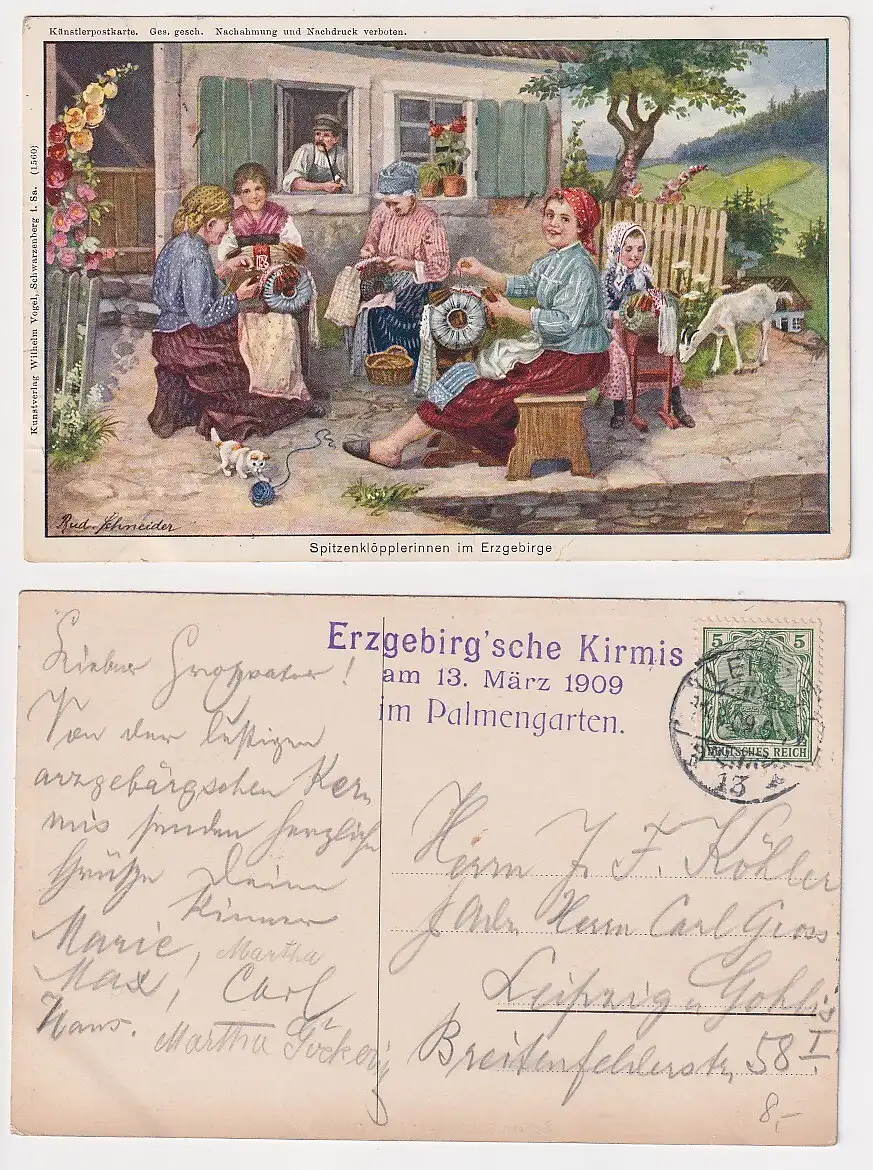 Künstlerpostkarte. Ges. gesch. Nachahmung und Nachdruck verboten.
Kunstverlag Wilhelm Vogel, Schwarzenberg i. Sa. (1560)
Rud. Schneider
Spitzenklöpplerinnen im Erzgebirge
Erzgebirg'sche Kirmis
am 13. März 1909
im Palmengarten.
5 5
DEUTSCHES REICH
13
Lieber Großvater!
Von der lustigen
arzgebärgschen Ker
mis senden herzliche
Grüße Deine
Kinner
Marie, Martha
Max! Carl
Hans. Martha
Herrn J. F. Köhler
Adr. Herrn Carl Gross
Leipzig Gohlis
Breitenfelderstr. 58 I.
8,-